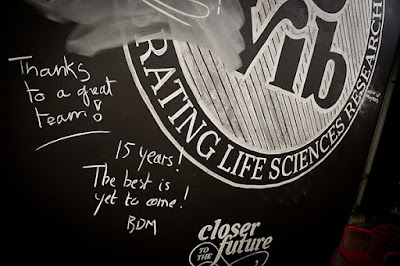 Thanks
to a great
team!
15 years!
The best is
yet to come!
BDM
Vib
RATING LIFE SCIENCES RESEARCH
closer
TO THE
future